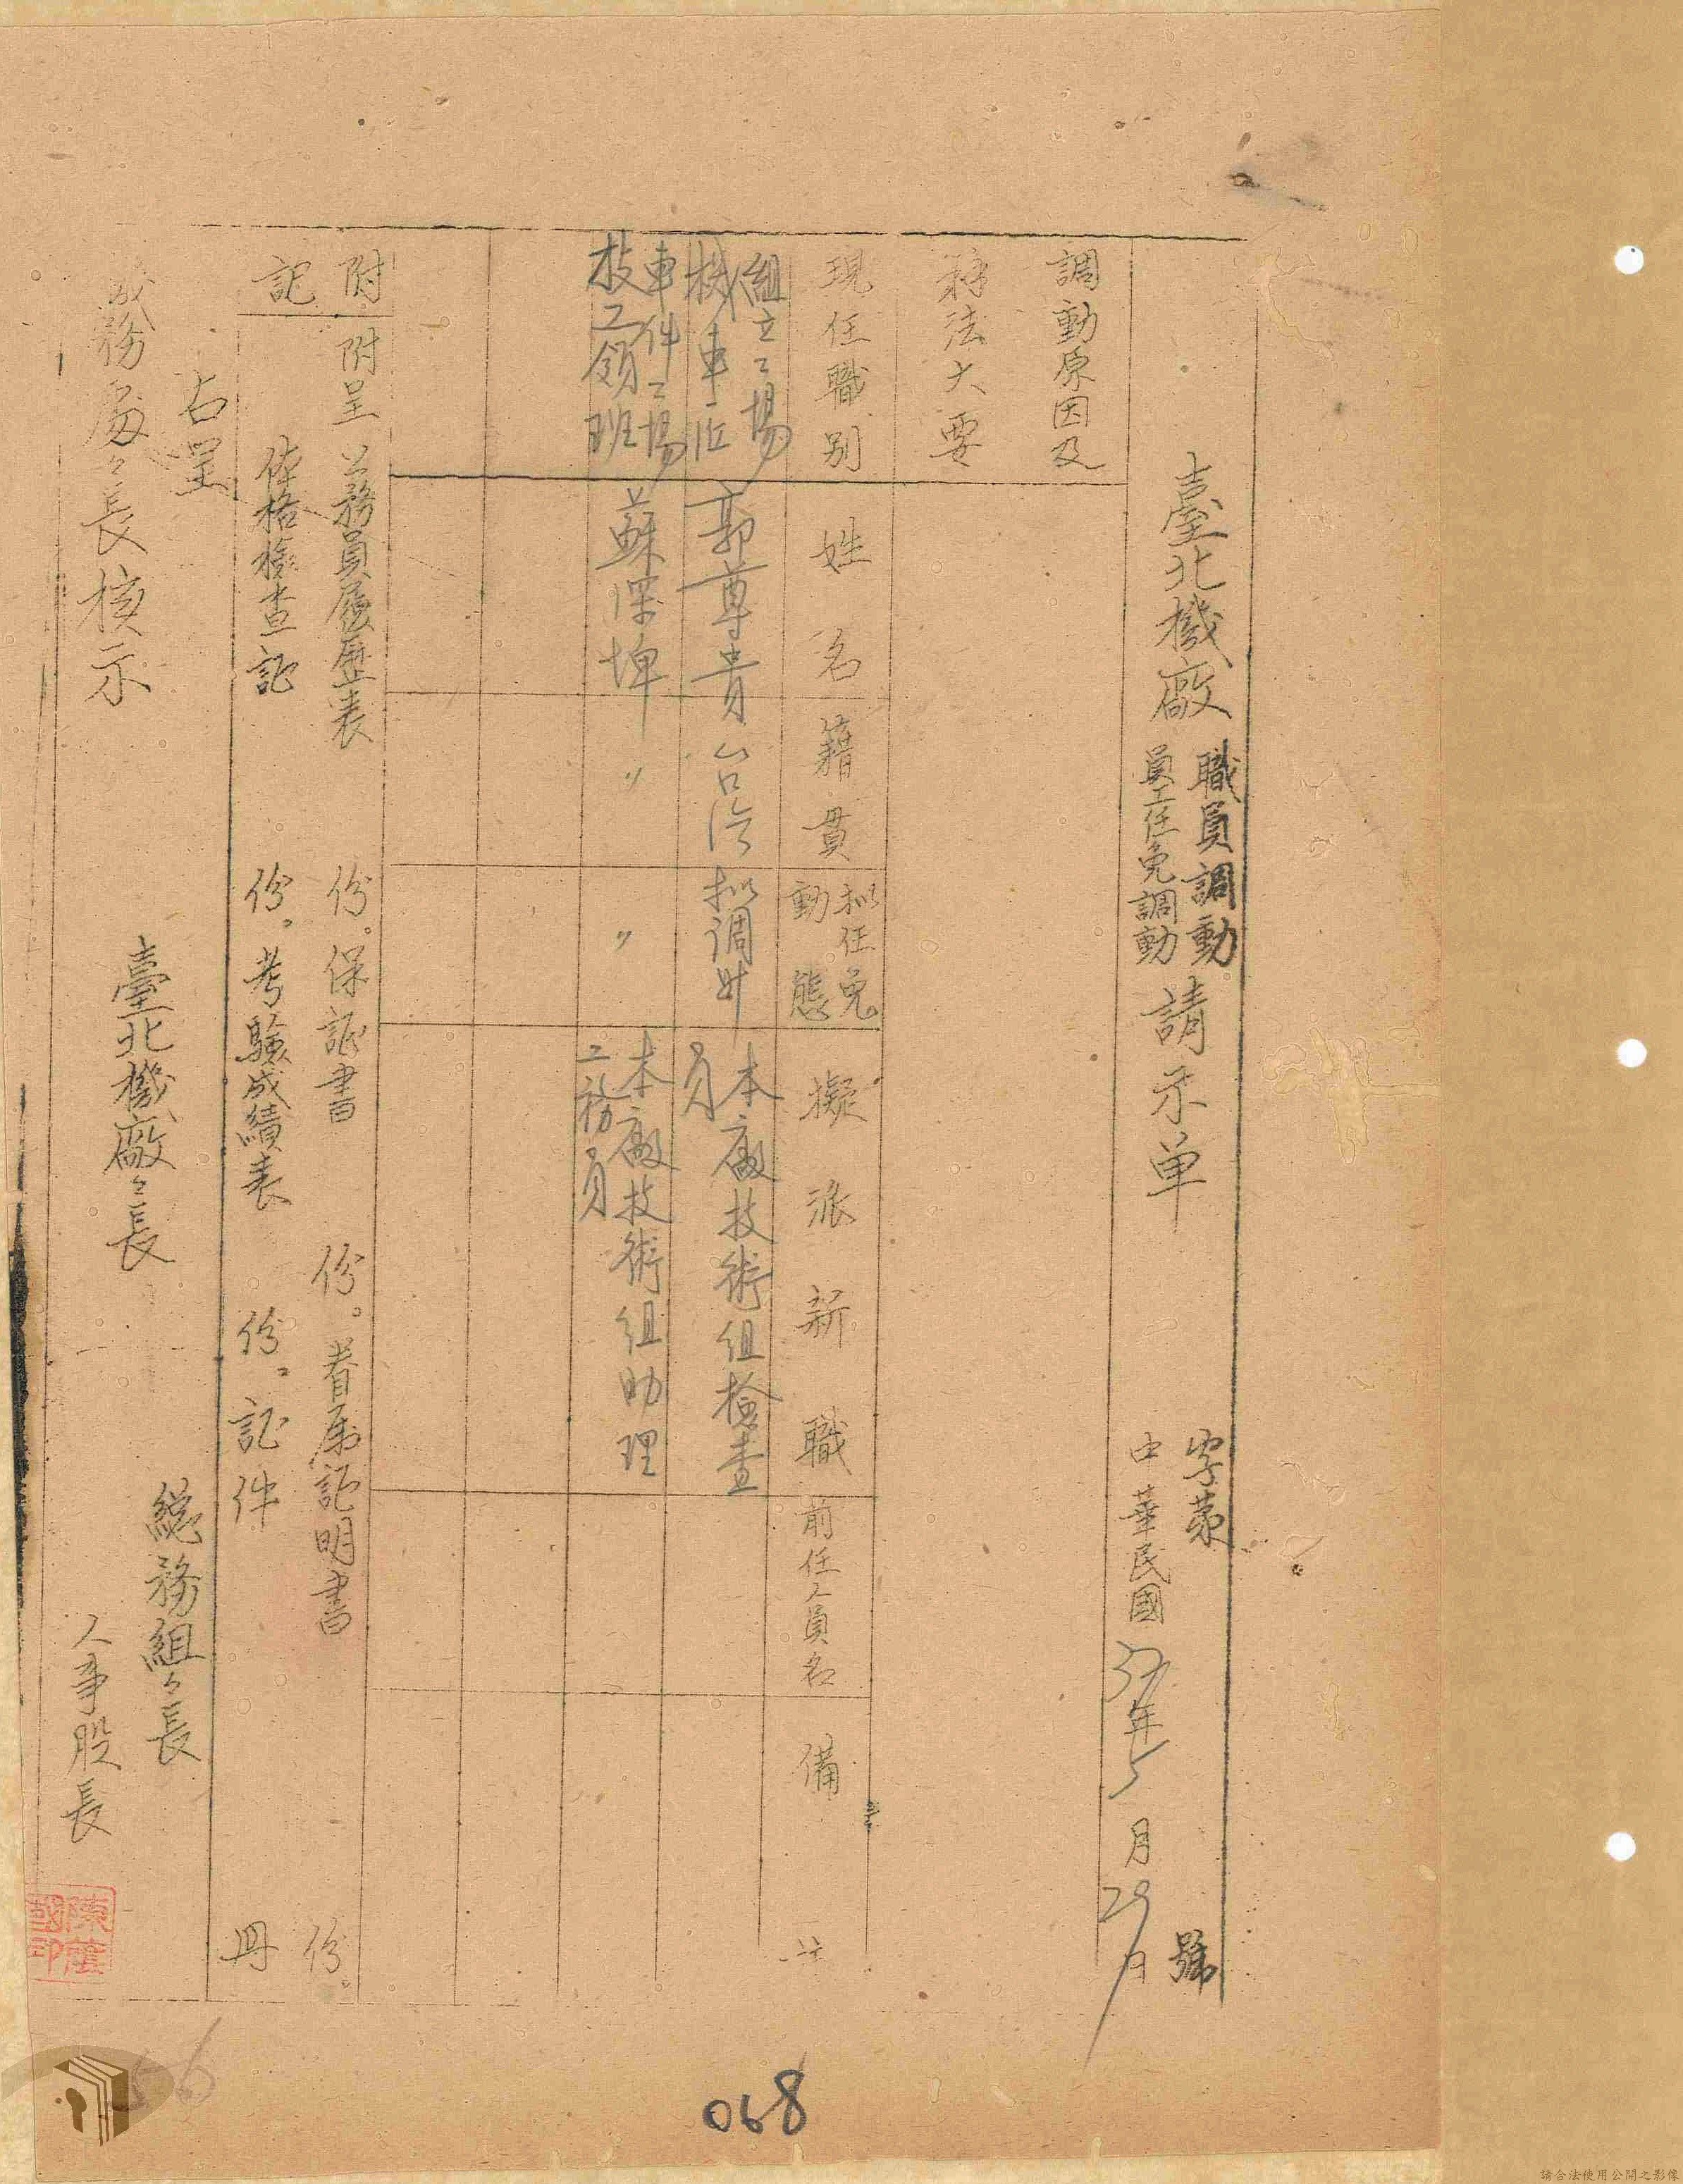 臺北機廠
職員調動
員工任免調動
請示单
字苐 號
中華民國37年5月29日
調動原因及
辦法大要
現任職別
姓名
籍貫
拟任免
動態
擬派新職
前任人員名
備註
組立工場
機車匠
郭尊貴
台湾
拟調升
本廠技術組檢查
員
車件工場
技工領班
蘇深埤
〃
〃
本廠技術組助理
工務員
附記
附呈 公務員履歷表 份。保証書 份。眷屬証明書 份。
体格檢查証 份。考驗成績表 份。証件 冊
右呈
處長核示
臺北機廠々長
総務組々長
人事股長
068
56
請合法使用公開之影像